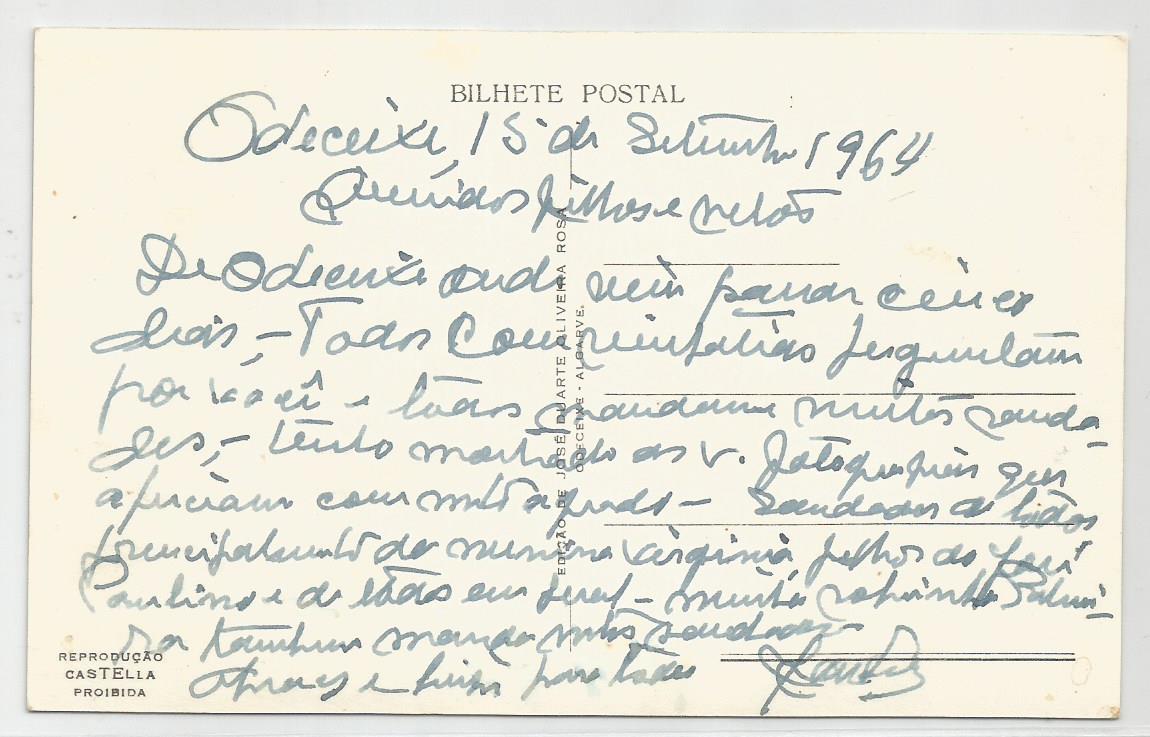 BILHETE POSTAL
Odeceixe, 15 de Setembro 1964
Queridos filhos e netos
De Odeceixe onde vim passar cinco
dias, - Todos perguntam
por você e todos mandam muitas sauda-
des, - tenho mostrado as v. fotografias que
apreciam com mto agrado - Saudades de todos
principalmente da menina Virginia filhos do José
Paulino e de todos em geral - muita Palmi-
ra tambem manda mtas saudades
Abraços e para todos
EDIÇÃO DE JOSÉ DUARTE OLIVEIRA ROSA
ODECEIXE - ALGARVE.
REPRODUÇÃO
CASTELLA
PROIBIDA